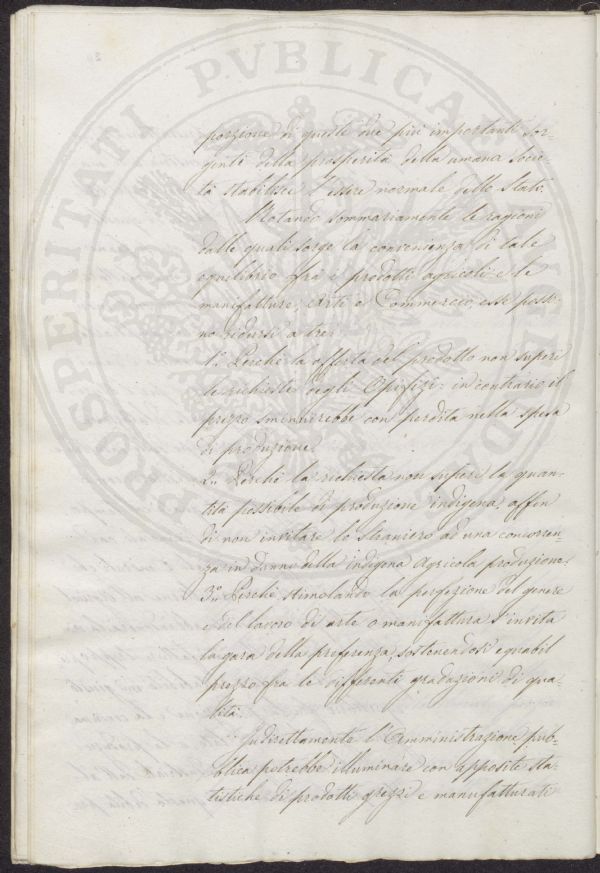 porzione di queste due più importanti sor-
genti della prosperità della umana Socie-
tà stabilisce l'essere normale dello Stato.
Notando sommariamente le ragioni
dalle quali sorge la convenienza di tale
equilibrio fra i prodotti agricoli e le
manifatture, Arti e Commercio, esse posso-
no ridursi a tre:
1.° Perchè la offerta del prodotto non superi
le richieste degli Opifizi: in contrario il
prezzo sminuirebbe con perdita nella spesa
di produzione.
2.° Perchè la richiesta non superi la quan-
tità possibile di produzione indigena, affin
di non invitare lo straniero ad una concorren-
za in danno della indigena Agricola produzione.
3.° Perchè stimolando la perfezione del genere
e del lavoro di arte o manifattura s'invita
la gara della preferenza, sostenendosi equabil
prezzo fra le differenti graduzioni di qua-
lità.
Indirettamente l'Amministrazione pub-
blica potrebbe illuminare con apposite sta-
tistiche di prodotti grezzi e manufatturati
PROSPERITATI PVBLICAE AVGENDAE